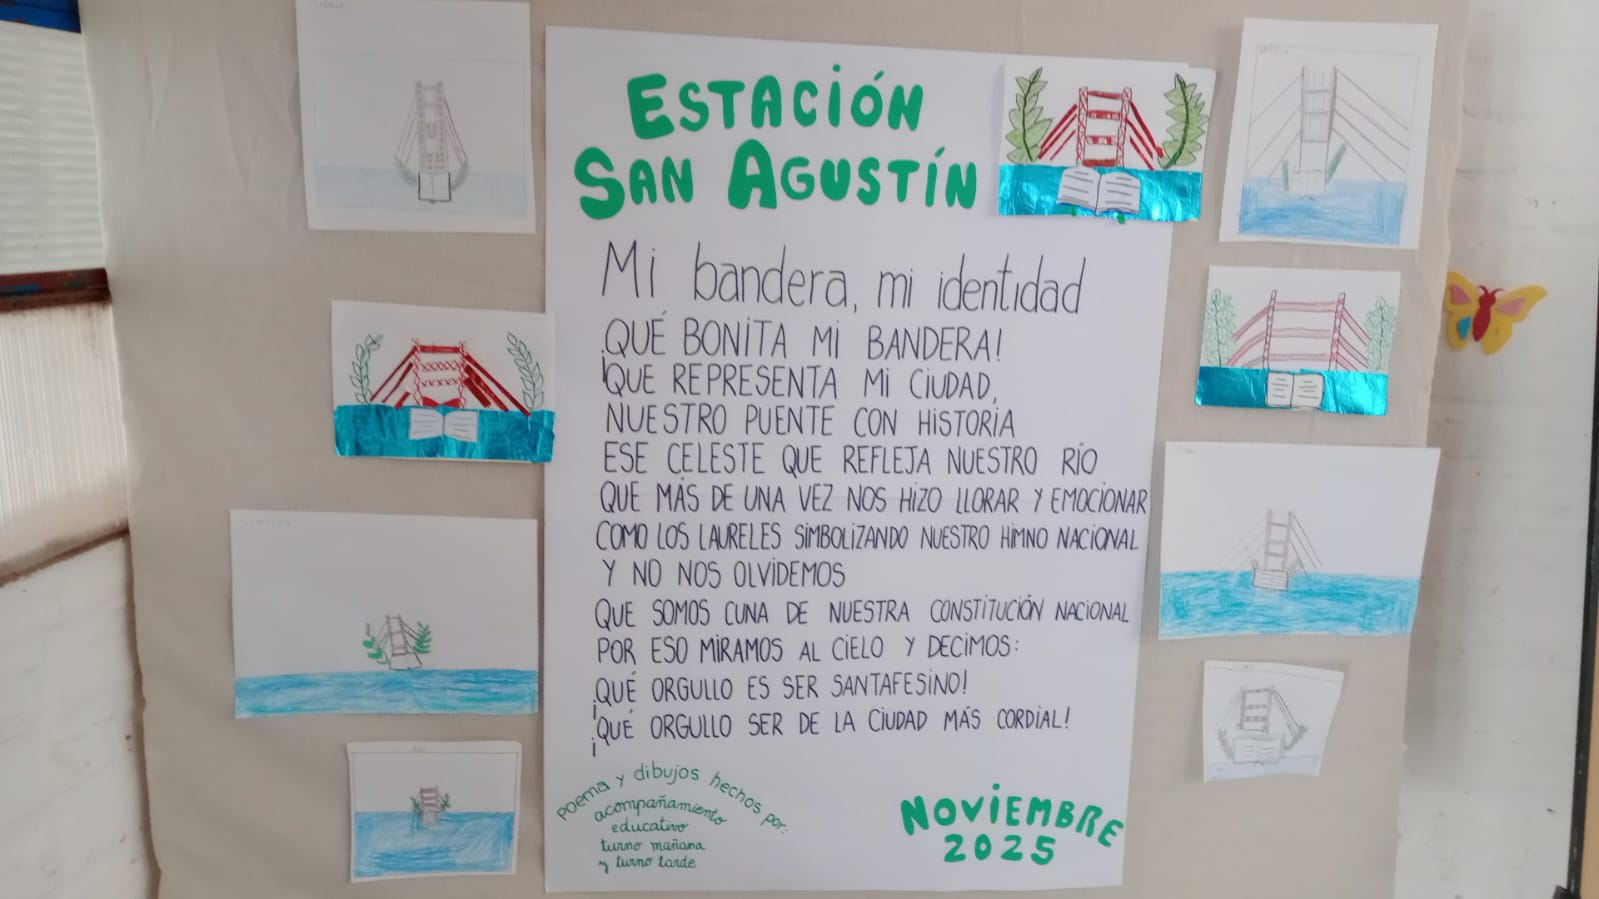 ESTACIÓN
SAN AGUSTÍN
Mi bandera, mi identidad
¡QUÉ BONITA MI BANDERA!
QUE REPRESENTA MI CIUDAD,
NUESTRO PUENTE CON HISTORIA
ESE CELESTE QUE REFLEJA NUESTRO RÍO
QUE MÁS DE UNA VEZ NOS HIZO LLORAR Y EMOCIONAR
COMO LOS LAURELES SIMBOLIZANDO NUESTRO HIMNO NACIONAL
Y NO NOS OLVIDEMOS
QUE SOMOS CUNA DE NUESTRA CONSTITUCIÓN NACIONAL
POR ESO MIRAMOS AL CIELO Y DECIMOS:
¡QUÉ ORGULLO ES SER SANTAFESINO!
¡QUÉ ORGULLO SER DE LA CIUDAD MÁS CORDIAL!
Poema y dibujos hechos por:
acompañamiento
educativo
turno mañana
y turno tarde
NOVIEMBRE
2025